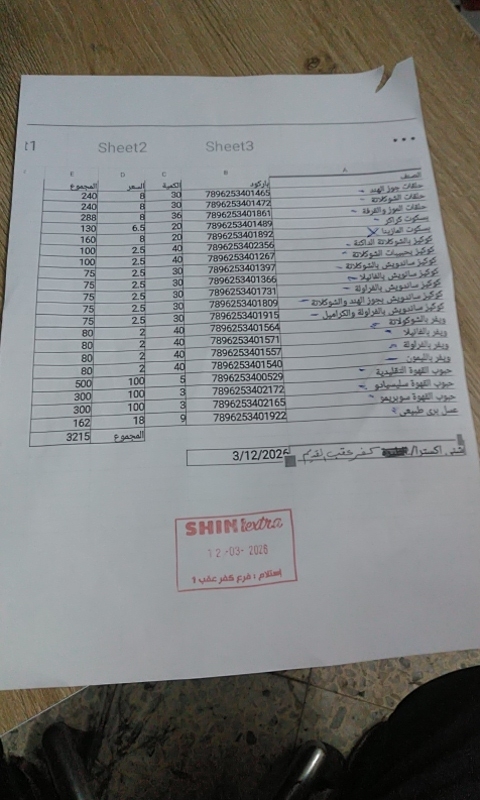 t1 Sheet2 Sheet3 •••
E D C B A
الصنف باركود الكمية السعر المجموع
حلقات جوز الهند 7896253401465 30 8 240
حلقات الشوكلاتة 7896253401472 30 8 240
حلقات الموز والقرفة 7896253401861 36 8 288
بسكوت كراكر 7896253401489 20 6.5 130
بسكوت المازينا 7896253401892 20 8 160
كوكيز بالشوكلاتة الداكنة 7896253402356 40 2.5 100
كوكيز بحبيبات الشوكلاتة 7896253401267 40 2.5 100
كوكيز ساندويش بالشوكلاتة 7896253401397 30 2.5 75
كوكيز سانويش بالفانيلا 7896253401366 30 2.5 75
كوكيز ساندويش بالفراولة 7896253401731 30 2.5 75
كوكيز ساندويش بجوز الهند والشوكلاتة 7896253401809 30 2.5 75
كوكيز ساندويش بالفراولة والكراميل 7896253401915 30 2.5 75
ويفر بالشوكولاتة 7896253401564 40 2 80
ويفر بالفانيلا 7896253401571 40 2 80
ويفر بالفراولة 7896253401557 40 2 80
ويفر بالليمون 7896253401540 40 2 80
حبوب القهوة التقليدية 7896253400529 5 100 500
حبوب القهوة سليسيادو 7896253402172 3 100 300
حبوب القهوة سوبريمو 7896253402165 3 100 300
عسل بري طبيعي 7896253401922 9 18 162
المجموع 3215
شني اكسترا/ كفر عقب القديم 3/12/2026
SHINI extra
12-03-2026
إستلام : فرع كفر عقب 1